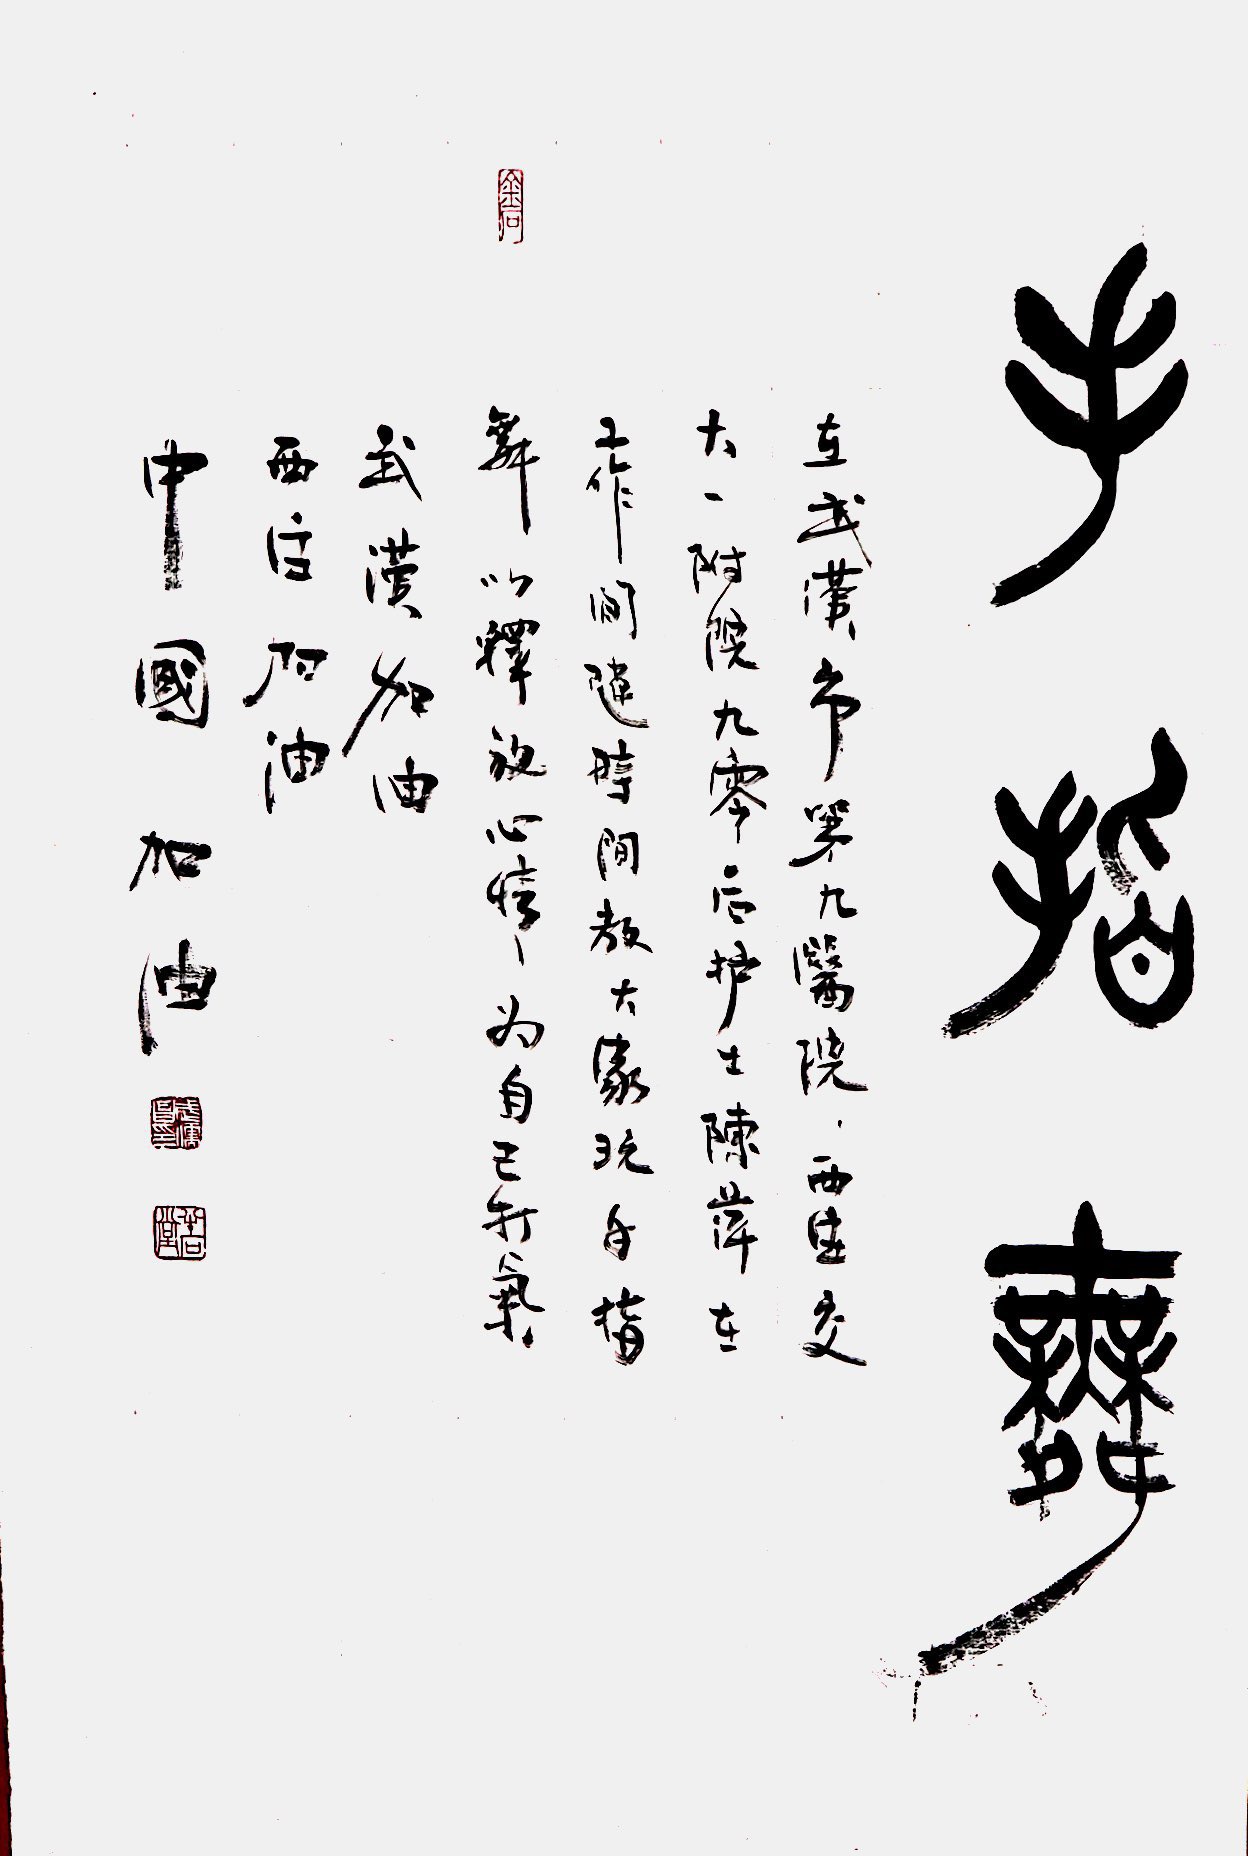 手指舞
在武漢市第九醫院、西安交
大一附院九零后护士陳萍在
工作間隙時間教大家玩手指
舞以釋放心情、为自己打氣
武漢加油
西安加油
中國加油